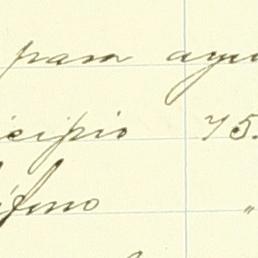 para ayu
icipio 75.
éfono "